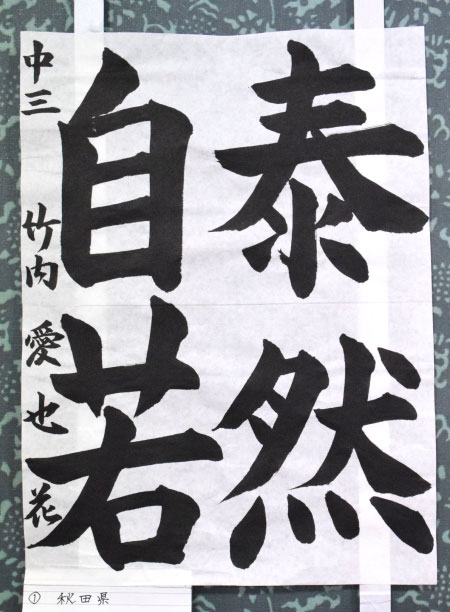 泰然
自若
中三 竹内 愛也花
① 秋田県